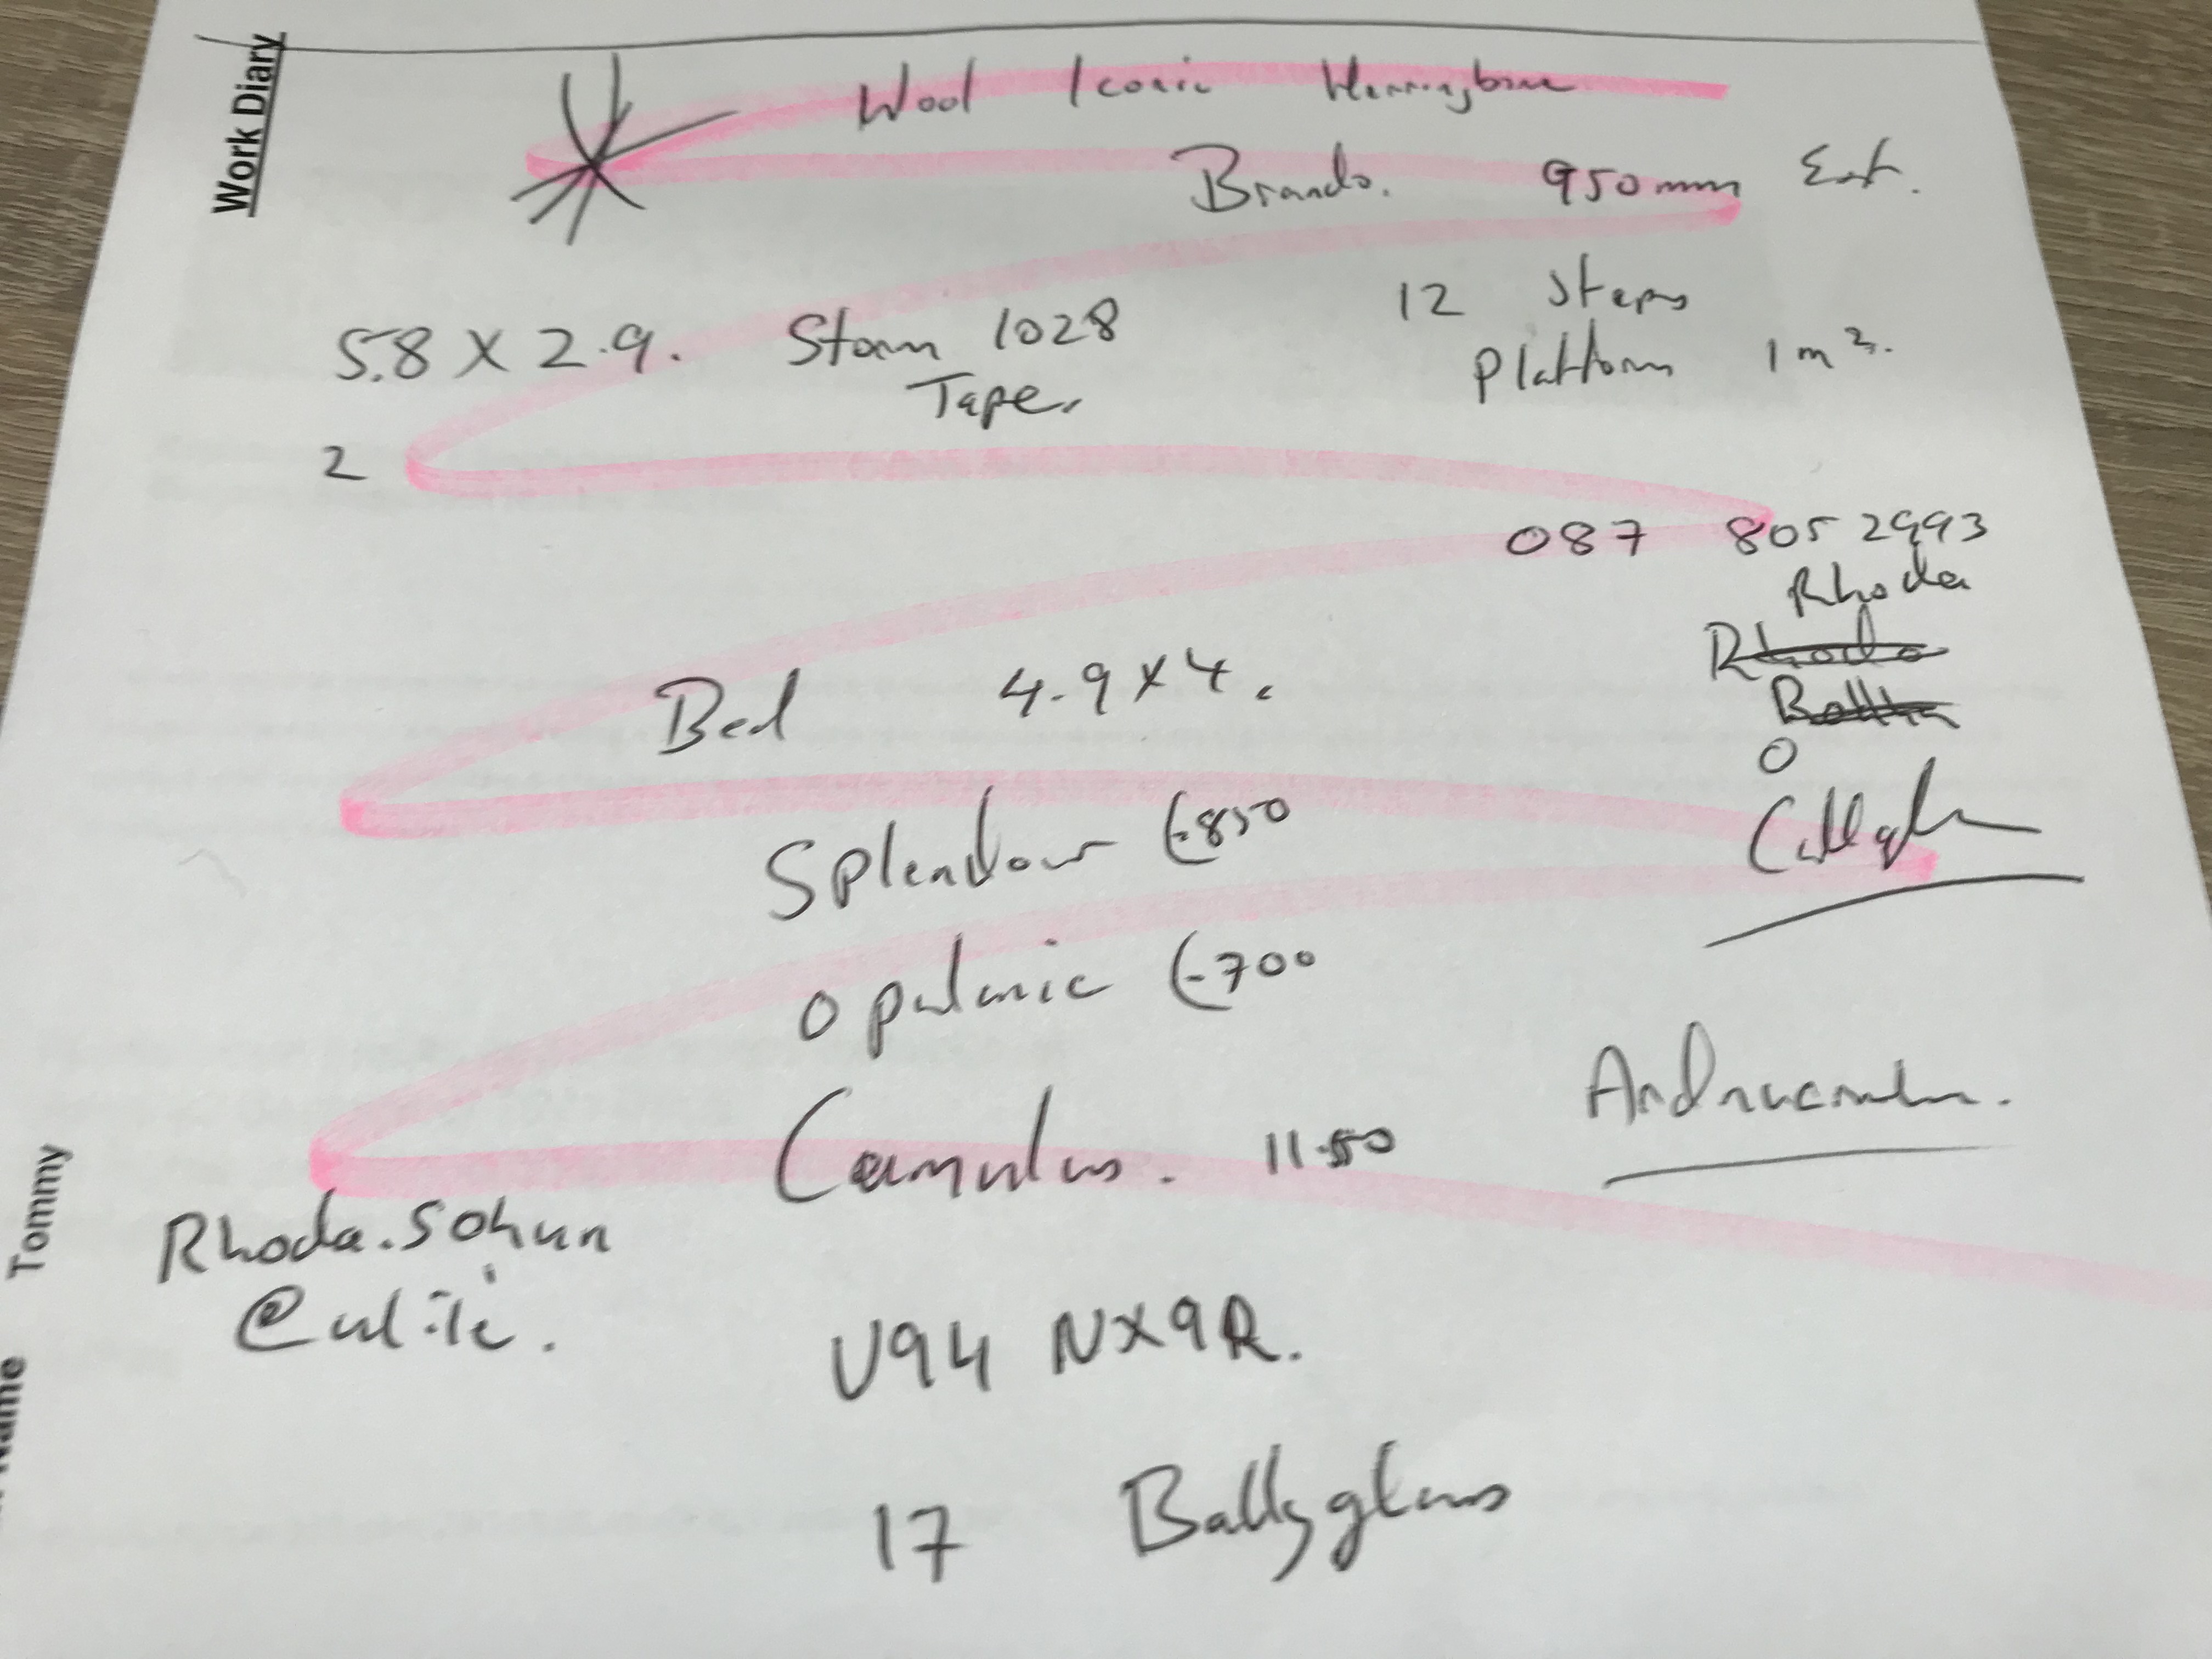 Work Diary
Wool Iconic Herringbone
Brando. 950mm Ext.
5.8 X 2.9. Storm 1028
Tape.
12 Steps
Platform 1m².
2
087 805 2993
Rhoda
Rhoda
O
Callaghan
Bed 4.9 X 4.
Splendour €850
Opulance €700
Cumulus. 11.50
Rhoda.Sohun
@ul.ie.
U94 NX9R.
17 Ballyglass
Tommy
Name